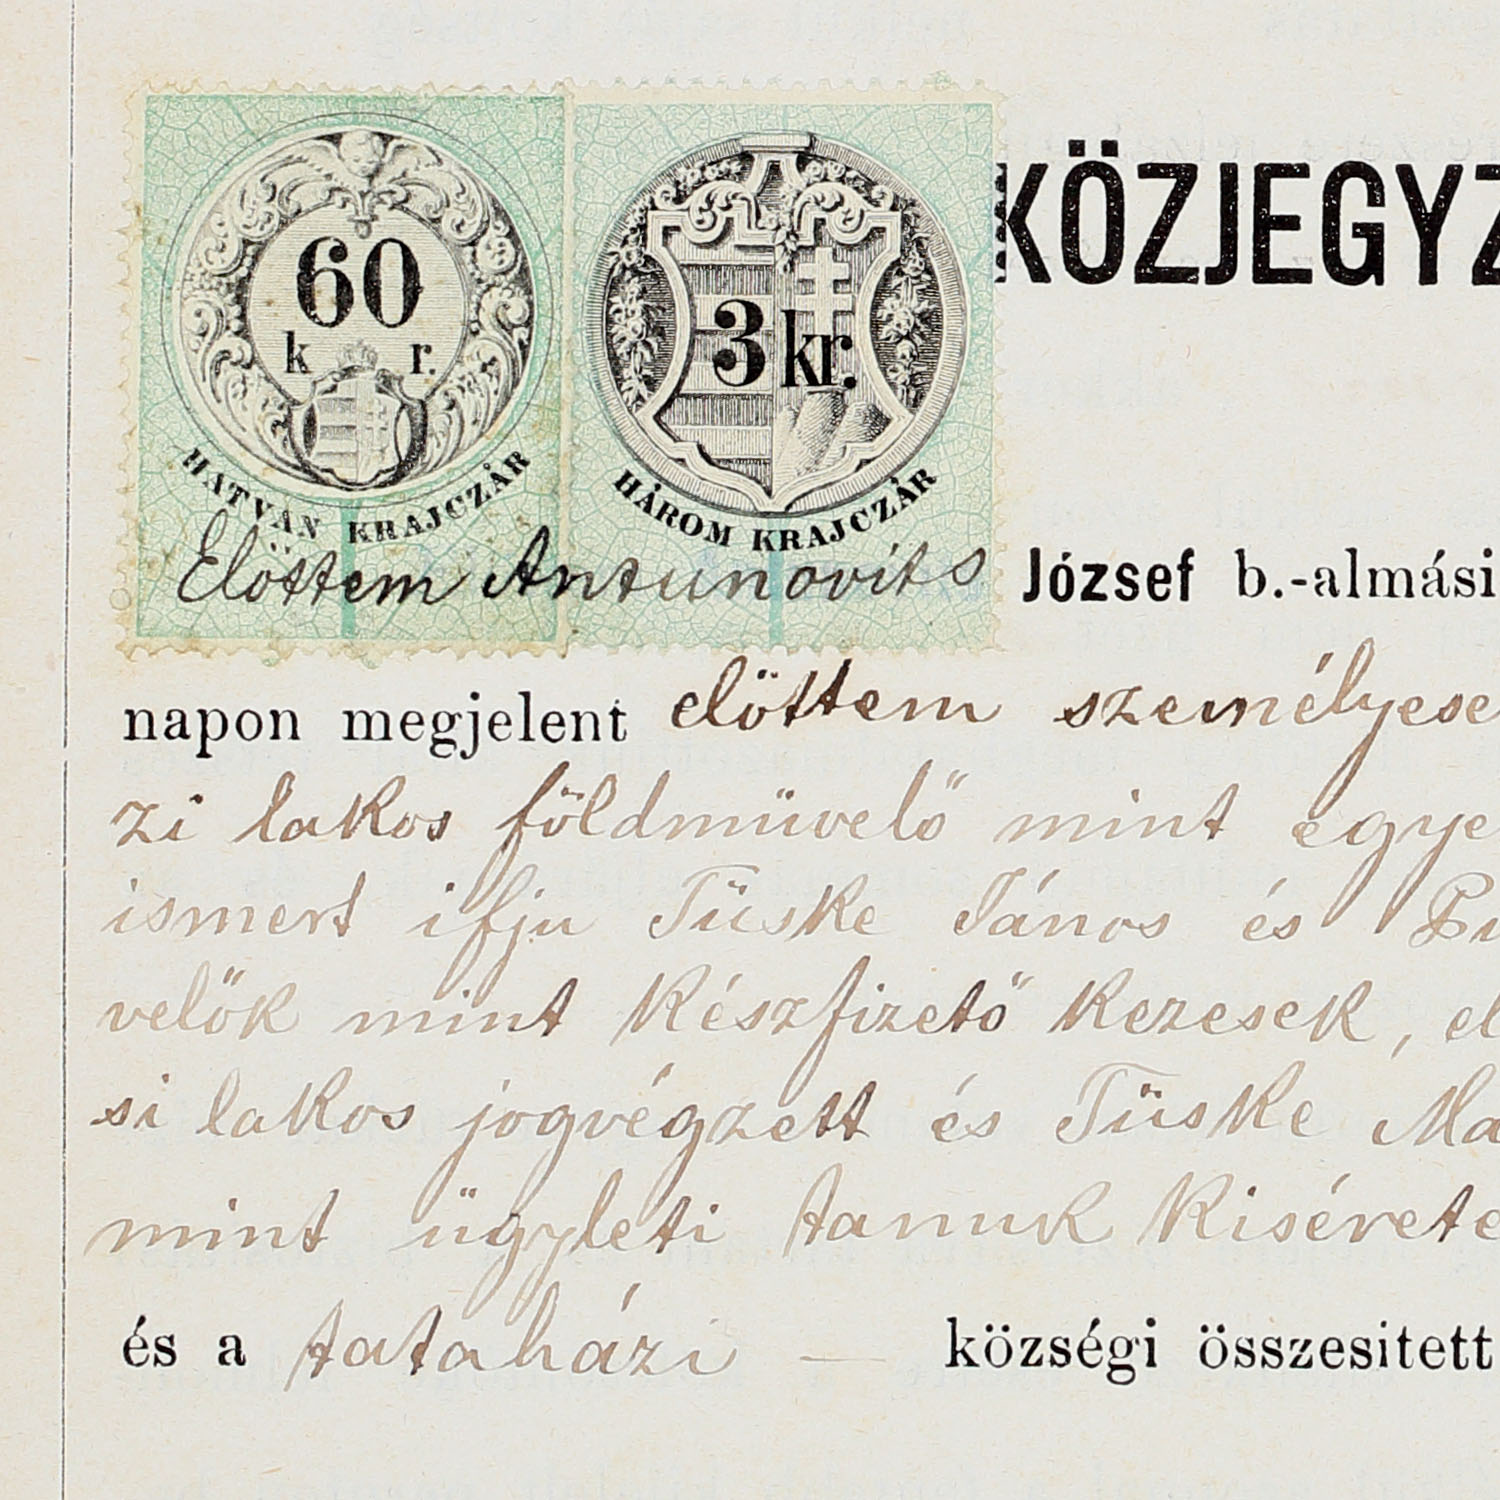 60
k r.
HATVAN KRAJCZÁR
3 kr.
HÁROM KRAJCZÁR
KÖZJEGYZ
Előttem Antunovits József b.-almási
napon megjelent előttem személyese
zi lakos földmüvelő mint egye
ismert ifju Tüske János és
velők mint készfizető kezesek, el
si lakos jogvégzett és Tüske Ma
mint ügyleti tanuk kisérete
és a tataházi — községi összesitett